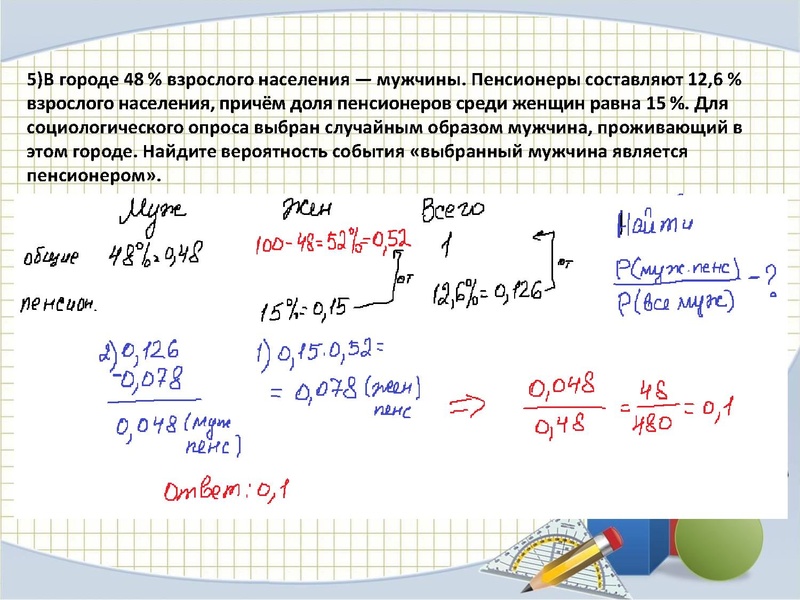 5)В городе 48 % взрослого населения — мужчины. Пенсионеры составляют 12,6 %
взрослого населения, причём доля пенсионеров среди женщин равна 15 %. Для
социологического опроса выбран случайным образом мужчина, проживающий в
этом городе. Найдите вероятность события «выбранный мужчина является
пенсионером».
Муж Жен Всего
Найти
общие 48%=0,48 100-48=52%=0,52 1
от от
P(муж.пенс)
P(все муж) - ?
пенсион. 15%=0,15 12,6%=0,126
2) 0,126
-0,078
0,048 (муж
пенс)
1) 0,15·0,52=
= 0,078 (жен)
пенс
=> 0,048
0,48
= 48
480
= 0,1
Ответ: 0,1